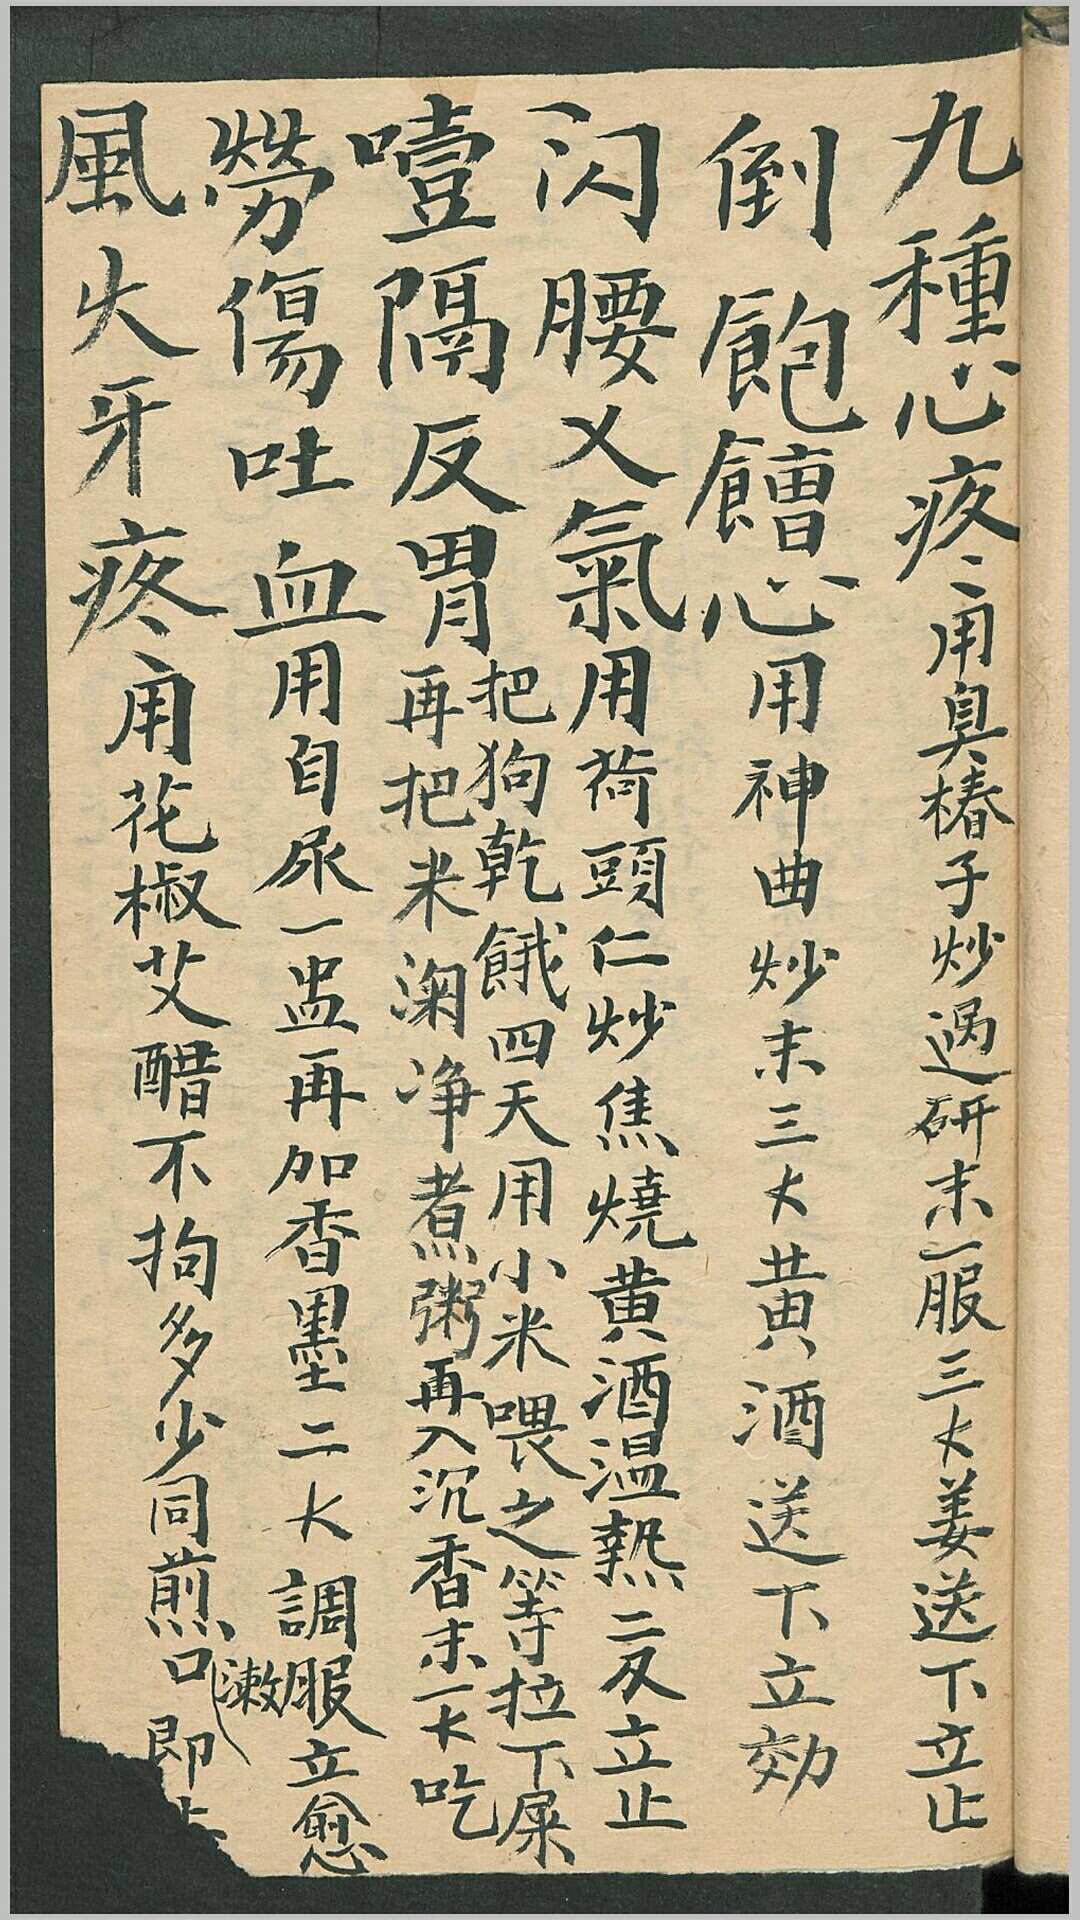 九種心疼用臭椿子炒過研末一服三大姜送下立止
倒飽饋心用神曲炒末三大黄酒送下立効
闪腰乂氣用荷頭仁炒焦燒黄酒温熱二反立止
噎隔反胃把狗乾餓四天用小米喂之等拉下屎
再把米淘净煮粥再入沉香末一大吃
勞傷吐血用自尿一盅再加香墨二大調服立愈
風火牙疼用花椒艾醋不拘多少同煎漱口即